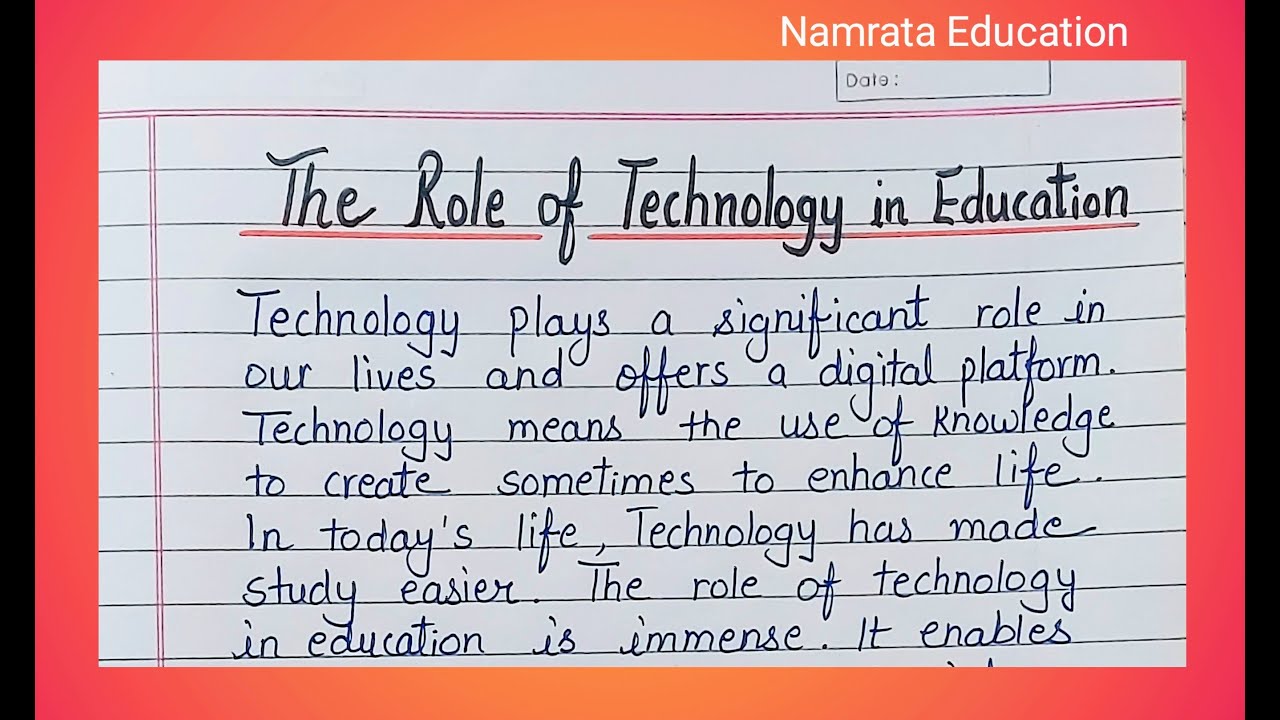 Namrata Education
Date:
The Role of Technology in Education
Technology plays a significant role in
our lives and offers a digital platform.
Technology means the use of knowledge
to create sometimes to enhance life.
In today's life, Technology has made
study easier. The role of technology
in education is immense. It enables